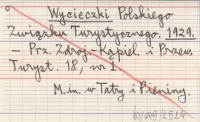 Wycieczki Polskiego
Związku Turystycznego. 1929.
– Prz. Zdroj.-Kąpiel. i Przew.
Turyst. 18, nr 1.
M.in. w Tatry i Pieniny.